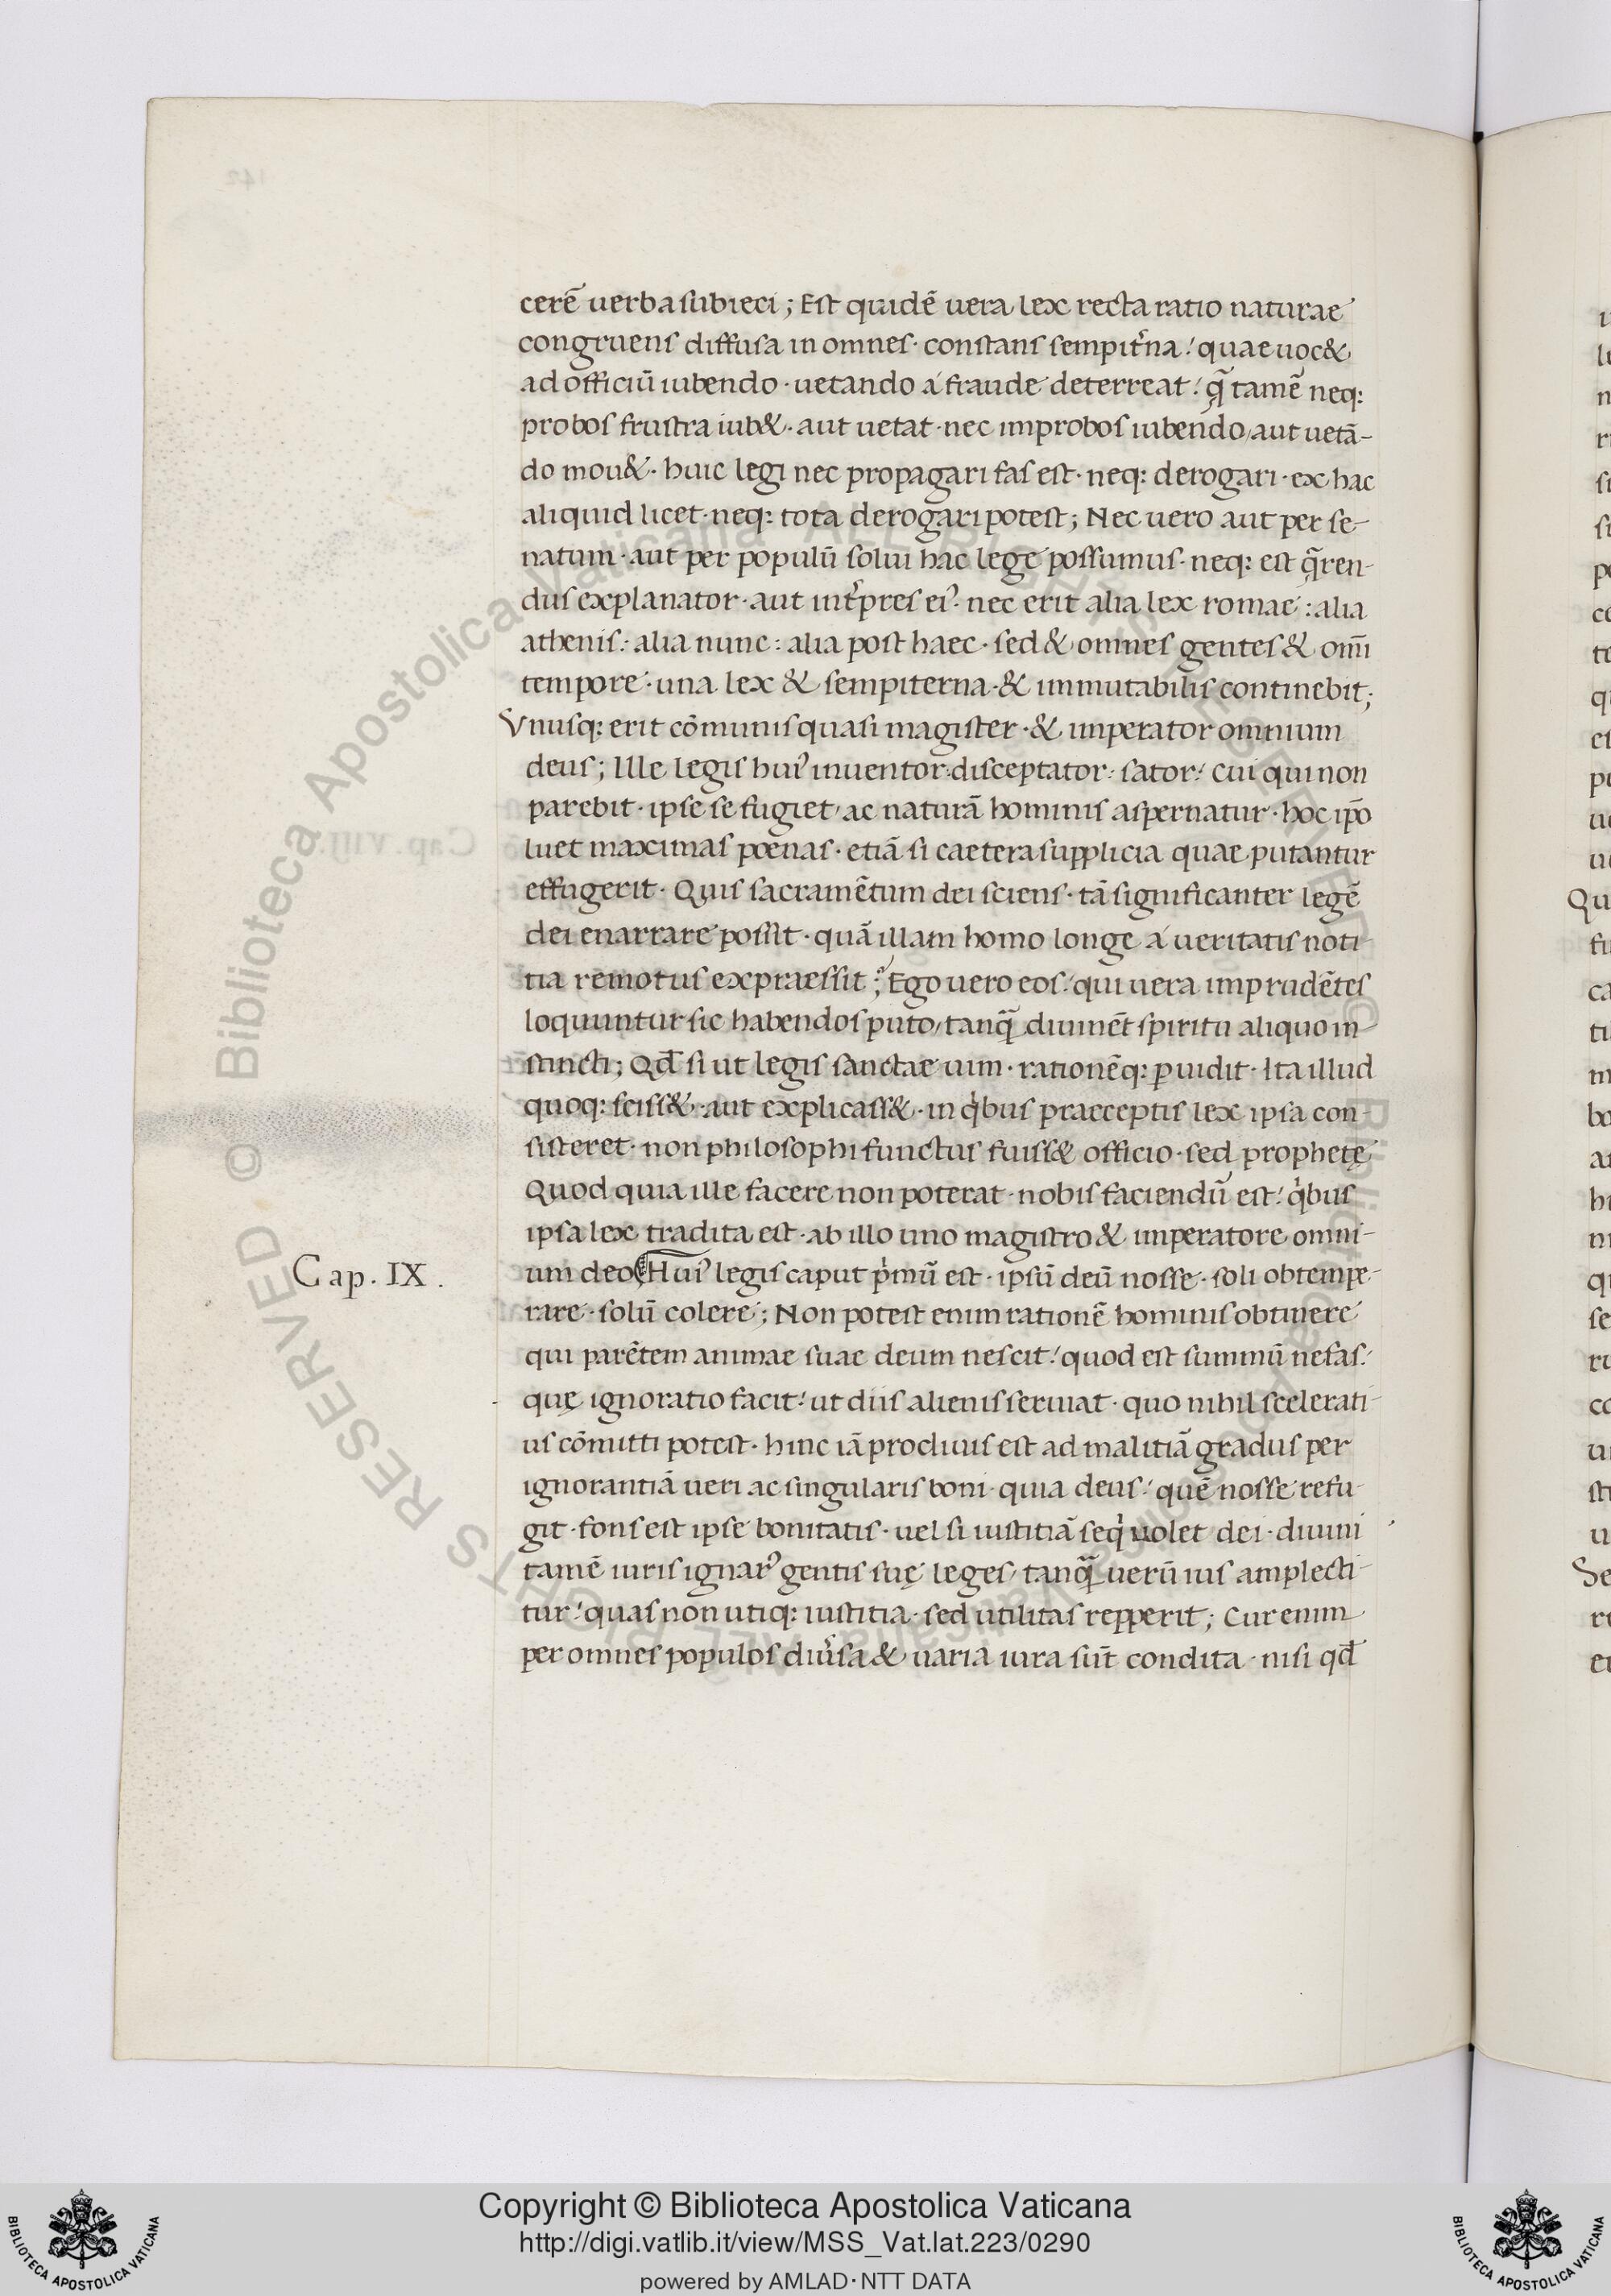 cerẽ uerba subieci; Est quidẽ uera lex recta ratio naturae
congruens diffusa in omnes· constans sempit̉na: quae uoc&
ad officiũ iubendo· uetando a fraude deterreat: q̃ tamẽ neq:
probos frustra iub&· aut uetat· nec improbos iubendo, aut uetã-
do mou&· huic legi nec propagari fas est· neq: derogari· ex hac
aliquid licet· neq: tota derogari potest; Nec uero aut per se-
natum· aut per populũ solui hac lege possumus· neq: est q̃ren-
dus explanator· aut int̉pres eiꝰ· nec erit alia lex romae: alia
athenis: alia nunc: alia post haec· sed & omnes gentes & om̃i
tempore· una lex & sempiterna· & immutabilis continebit;
Vnusq: erit cõmunis quasi magister· & imperator omnium
deus; Ille legis huiꝰ inuentor· disceptator: sator: cui qui non
parebit· ipse se fugiet, ac naturã hominis aspernatur· hoc ip̃o
luet maximas poenas· etiã si caetera supplicia quae putantur
effugerit· Quis sacramẽtum dei sciens· tã significanter legẽ
dei enarrare possit· quã illam homo longe a ueritatis noti-
tia remotus expraessit? Ego uero eos: qui uera imprudẽtes
loquuntur sic habendos puto, tanq̃ diuinẽt spiritu aliquo in-
stincti; Qd̃ si ut legis sanctae uim· rationẽq: ꝑuidit· Ita illud
quoq: sciss&· aut explicass&· in q̉bus praeceptis lex ipsa con-
sisteret· non philosophi functus fuiss& officio· sed prophetę
Quod quia ille facere non poterat· nobis faciendũ est: q̉bus
ipsa lex tradita est· ab illo uno magistro & imperatore omni-
um deo Huiꝰ legis caput p̉mũ est· ipsũ deũ nosse· soli obtempe-
Cap. IX.
rare· solũ colere; Non potest enim rationẽ hominis obtinere
qui parẽtem animae suae deum nescit: quod est summũ nefas:
quę ignoratio facit: ut diis alienis seruiat· quo nihil scelerati-
us cõmitti potest· hinc iã procliuis est ad malitiã gradus per
ignorantiã ueri ac singularis boni· quia deus: quẽ nosse refu-
git· fons est ipse bonitatis· uel si iustitiã seq̉ uolet dei· diuini
tamẽ iuris ignarꝰ gentis suę leges, tanq̃ uerũ ius amplecti-
tur: quas non utiq: iustitia· sed utilitas repperit; Cur enim
per omnes populos diu̓sa & uaria iura sũt condita· nisi qd̃
Copyright © Biblioteca Apostolica Vaticana
http://digi.vatlib.it/view/MSS_Vat.lat.223/0290
powered by AMLAD·NTT DATA
BIBLIOTECA APOSTOLICA VATICANA
BIBLIOTECA APOSTOLICA VATICANA
© Biblioteca Apostolica Vaticana ALL RIGHTS RESERVED
© Biblioteca Apostolica Vaticana ALL RIGHTS RESERVED